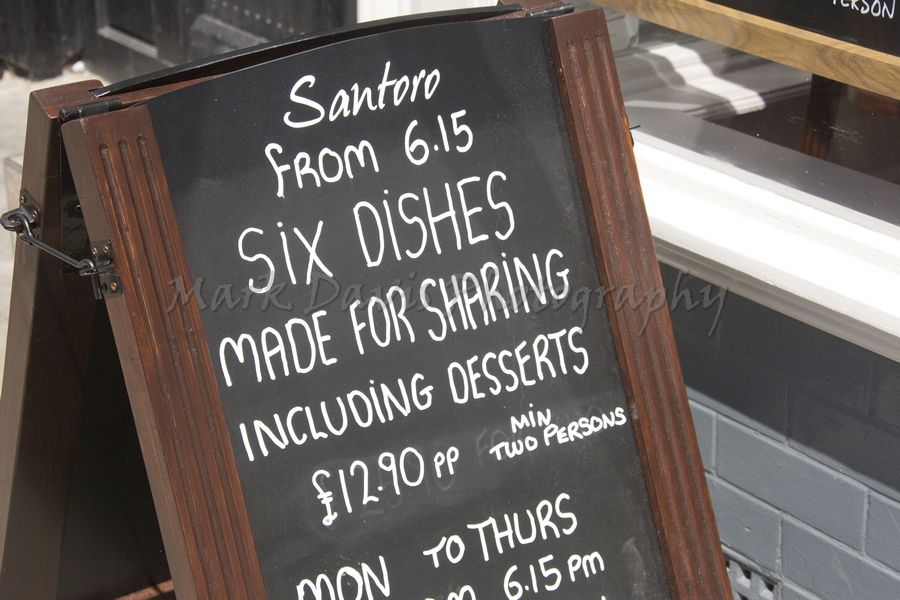 PERSON
Santoro
FROM 6.15
SIX DISHES
MADE FOR SHARING
Mark Davis Photography
INCLUDING DESSERTS
£12.90 PP MIN TWO PERSONS
MON TO THURS
6.15 Pm